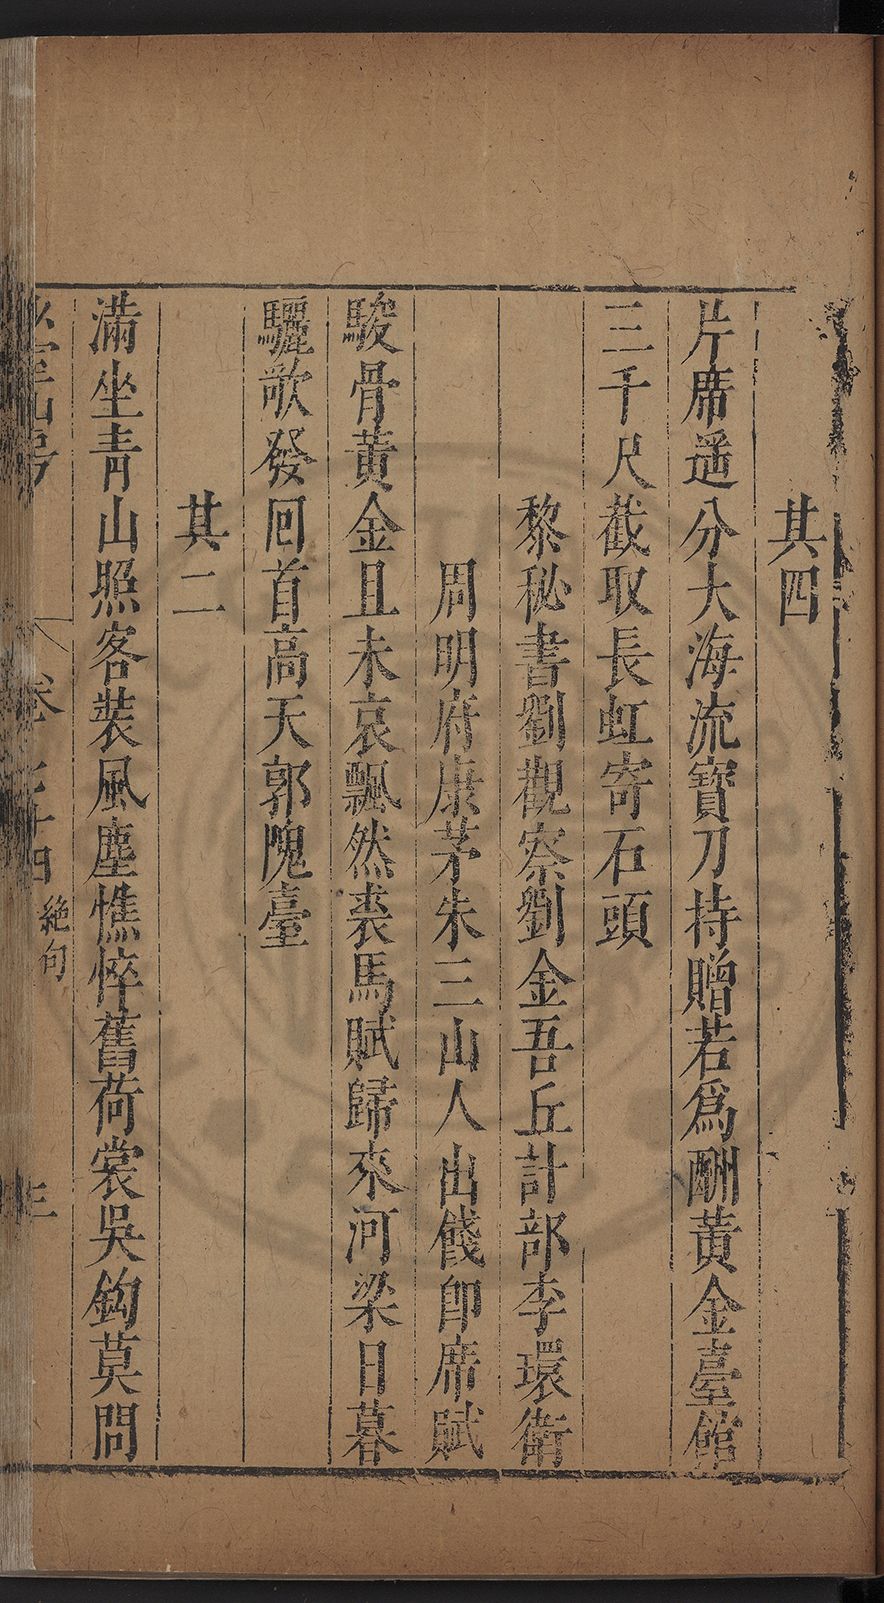 其四
片席遥分大海流寶刀持贈若爲酬黄金臺館
三千尺截取長虹寄石頭
黎秘書劉觀察劉金吾丘計部李環衛
周明府康茅朱三山人出餞卽席賦
駿骨黄金且未哀飄然裘馬賦歸來河梁日暮
驪歌發囘首高天郭隗臺
其二
滿坐青山照客裝風塵憔悴舊荷裳吳鉤莫問
卷 十四 絶句 三